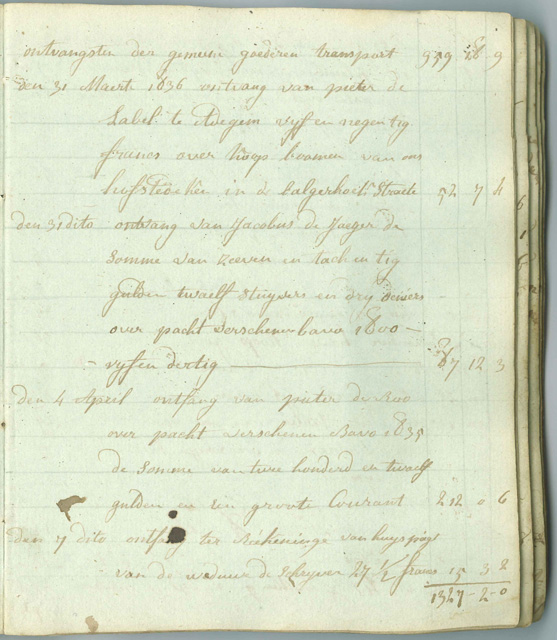 ontvangsten der gemeen goederen transport 979 18 9
den 31 Maert 1836 ontvang van pieter de
Label te Adegem vyf en negentig
francs over koop boomen van ons
hofstedeken in de balgerhock Straete 52 7 4
den 31 dito ontvang van Jacobus de Jaeger de
Somme van zeeven en tachentig
gulden twaelf stuyvers en dry deniers
over pacht verschenen bavo 1800 –
– vyf en dertig 87 12 3
den 4 April ontfang van pieter de Boo
over pacht verschenen Bavo 1835
de Somme van twee honderd en twaelf
gulden en een groote Courant 212 0 6
den 7 dito ontfang ter Rekeninge van huys
van de weduwe de Schryver 27 1/2 francs 15 3 2
1327 - 2 - 0